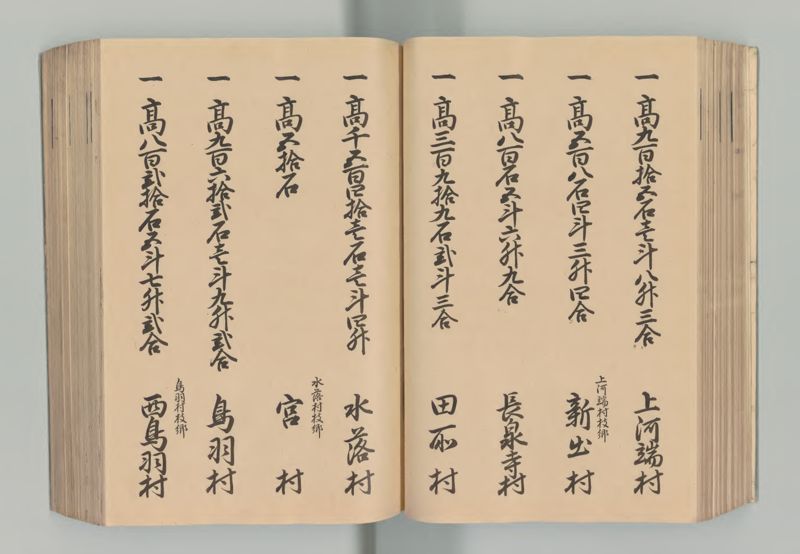 一 髙九百拾五石壱斗八升三合 上河端村
一 髙五百八石四斗三升四合 上河端村枝郷 新出村
一 髙八百石五斗六升九合 長泉寺村
一 髙三百九拾九石弐斗三合 田所村
一 髙千五百四拾壱石壱斗四升 水落村
一 髙五拾石 水落村枝郷 宮村
一 髙九百六拾弐石壱斗九升弐合 鳥羽村
一 髙八百弐拾石五斗七升弐合 鳥羽村枝郷 西鳥羽村